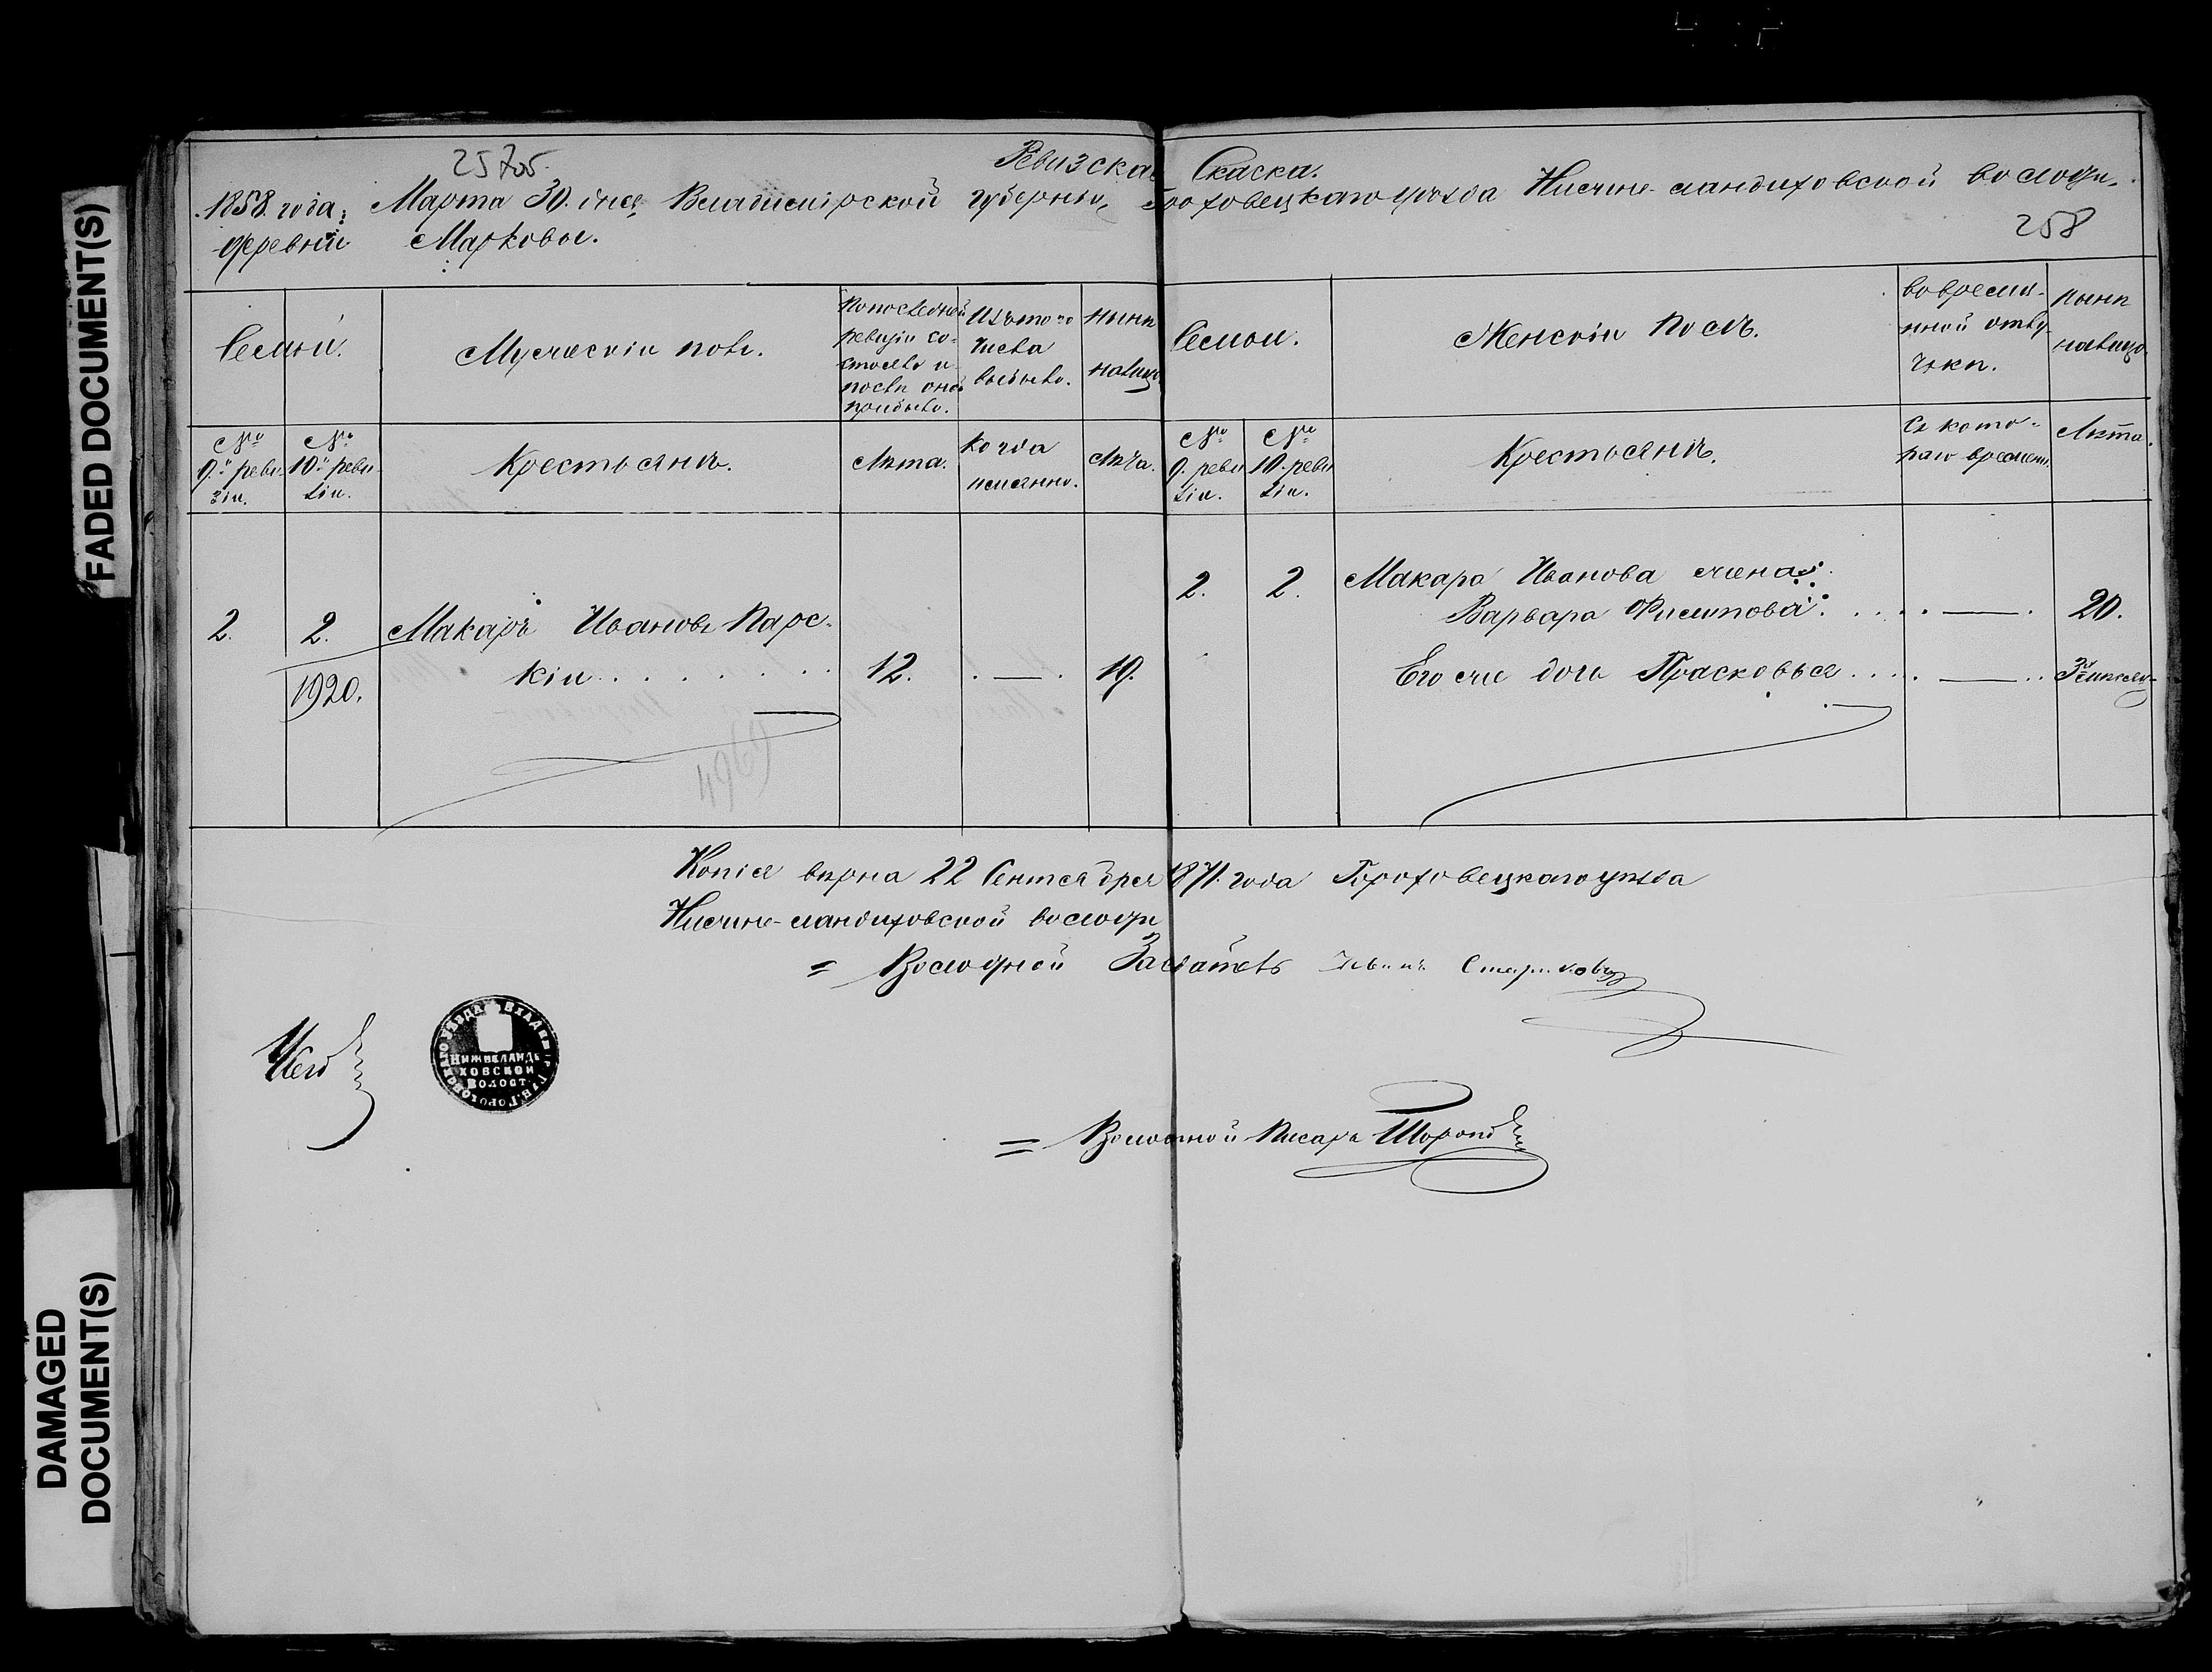 FADED DOCUMENT(S)
DAMAGED DOCUMENT(S)
257об
Ревизская Скаска.
1858. года: Марта 30. дня, Владимірской губерніи, Гороховецкаго уѣзда Нижне-ландиховской волости,
деревни Марковы.
258
Семьи.
Мужескій полъ.
По последней ревизіи состояло и после оной прибыло.
Изъ того числа выбыло.
Нынѣ налицо.
Семьи.
Женскій полъ.
во временной отлучкѣ.
Нынѣ налицо.
№ 9й ревизіи.
№ 10й ревизіи.
Крестьянъ.
Лѣта.
когда именно.
Лѣта.
№ 9. ревизіи.
№ 10. ревизіи.
Крестьянъ.
Съ котораго времени.
Лѣта.
2. 2. Макаръ Ивановъ Парс-
1920. кій . . . . . . . 12. . — . 19.
2. 2. Макара Иванова жена:
Варвара Филипова . . . . — . 20.
Его же дочь Прасковья . . . . — . .
Копія вѣрна 22 Сентября 1871. года Гороховецкаго уѣзда
Нижне-ландиховской волости
= Волостной Засѣдатель Иванъ Стариковъ
НИЖНЕЛАНДЕ
ХОВСКОЙ
ВОЛОСТ.
= Волостной Писарь